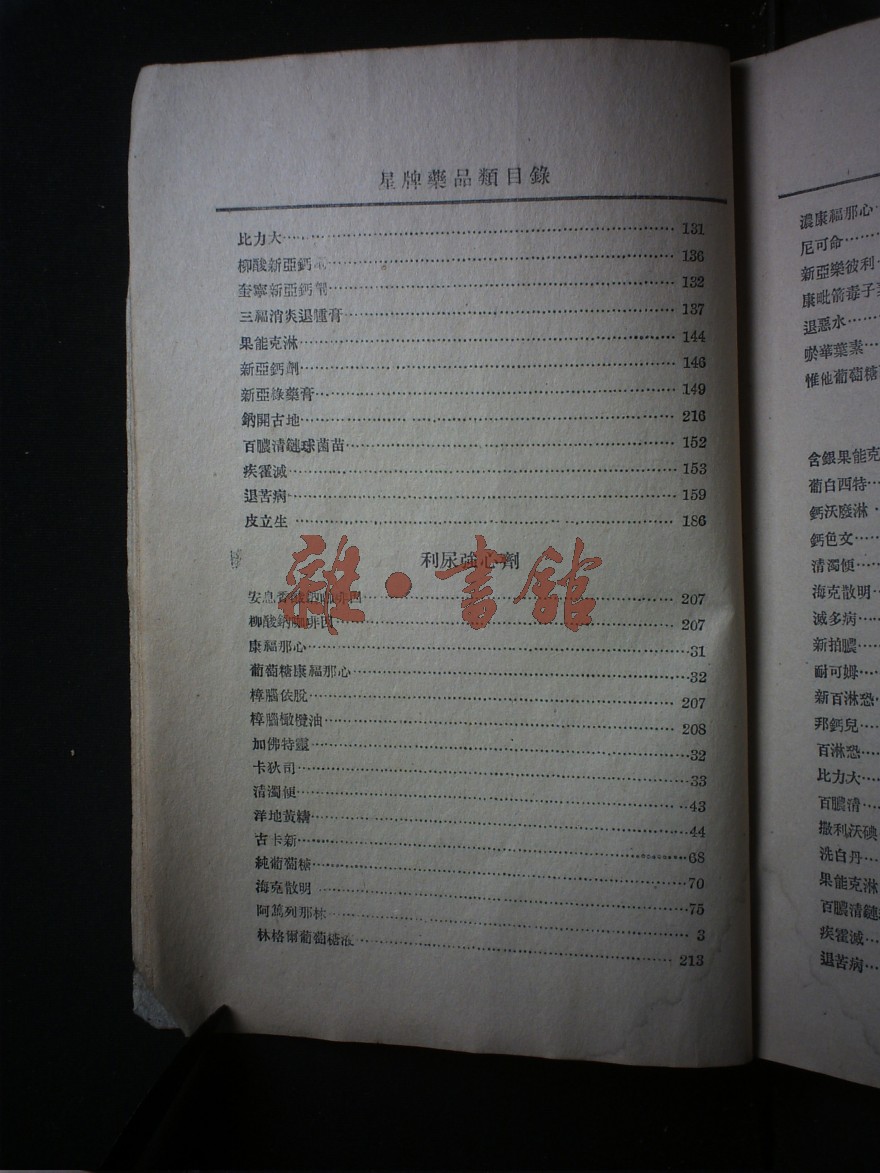 星牌藥品類目錄
比力大 131
柳酸新亞鈣劑 136
奎寧新亞鈣劑 132
三福消炎退腫膏 137
果能克淋 144
新亞鈣劑 146
新亞綠藥膏 149
鈉開古地 216
百膿清鏈球菌苗 152
疾霍滅 153
退苦病 159
皮立生 186
利尿強心劑
安息香酸鈉咖啡因 207
柳酸鈉咖啡因 207
康福那心 31
葡萄糖康福那心 32
樟腦依脫 207
樟腦橄欖油 208
加佛特靈 32
卡狄司 33
清濁便 43
洋地黃 44
古卡新 68
純葡萄糖 70
海克散明 75
阿篤列那林 3
林格爾葡萄糖液 213
雜·書館
濃康福那心
尼可命
新亞樂彼利
康毗箭毒子
退惡水
嗞華葉素
惟他葡萄糖
含銀果能克
葡白西特
鈣沃廢淋
鈣色文
清濁便
海克散明
滅多病
新拍膿
耐可姆
新百淋恐
邦鈣兒
百淋恐
比力大
百膿清
撒利沃碘
洗白丹
果能克淋
百膿清鏈
疾霍滅
退苦病